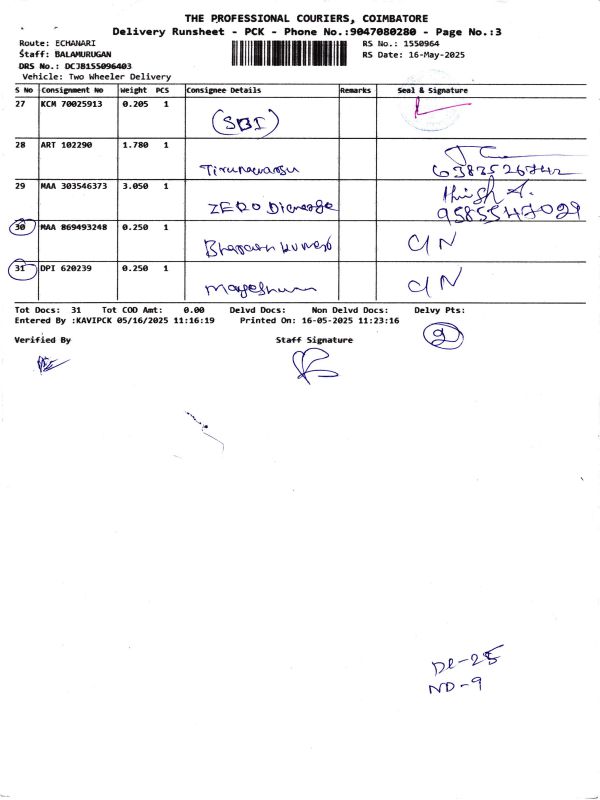 THE PROFESSIONAL COURIERS, COIMBATORE
Delivery Runsheet - PCK - Phone No.:9047080280 - Page No.:3
Route: ECHANARI RS No.: 1550964
Staff: BALAMURUGAN RS Date: 16-May-2025
DRS No.: DCJB155096403
Vehicle: Two Wheeler Delivery
S No Consignment No Weight PCS Consignee Details Remarks Seal & Signature
27 KCM 70025913 0.205 1
(SBI)
28 ART 102290 1.780 1
6383526742
29 MAA 303546373 3.050 1
ZERO
9585547029
30 MAA 869493248 0.250 1
C/N
31 DPI 620239 0.250 1
C/N
Tot Docs: 31 Tot COD Amt: 0.00 Delvd Docs: Non Delvd Docs: Delvy Pts:
Entered By :KAVIPCK 05/16/2025 11:16:19 Printed On: 16-05-2025 11:23:16
2
Verified By Staff Signature
Dl-25
ND-9